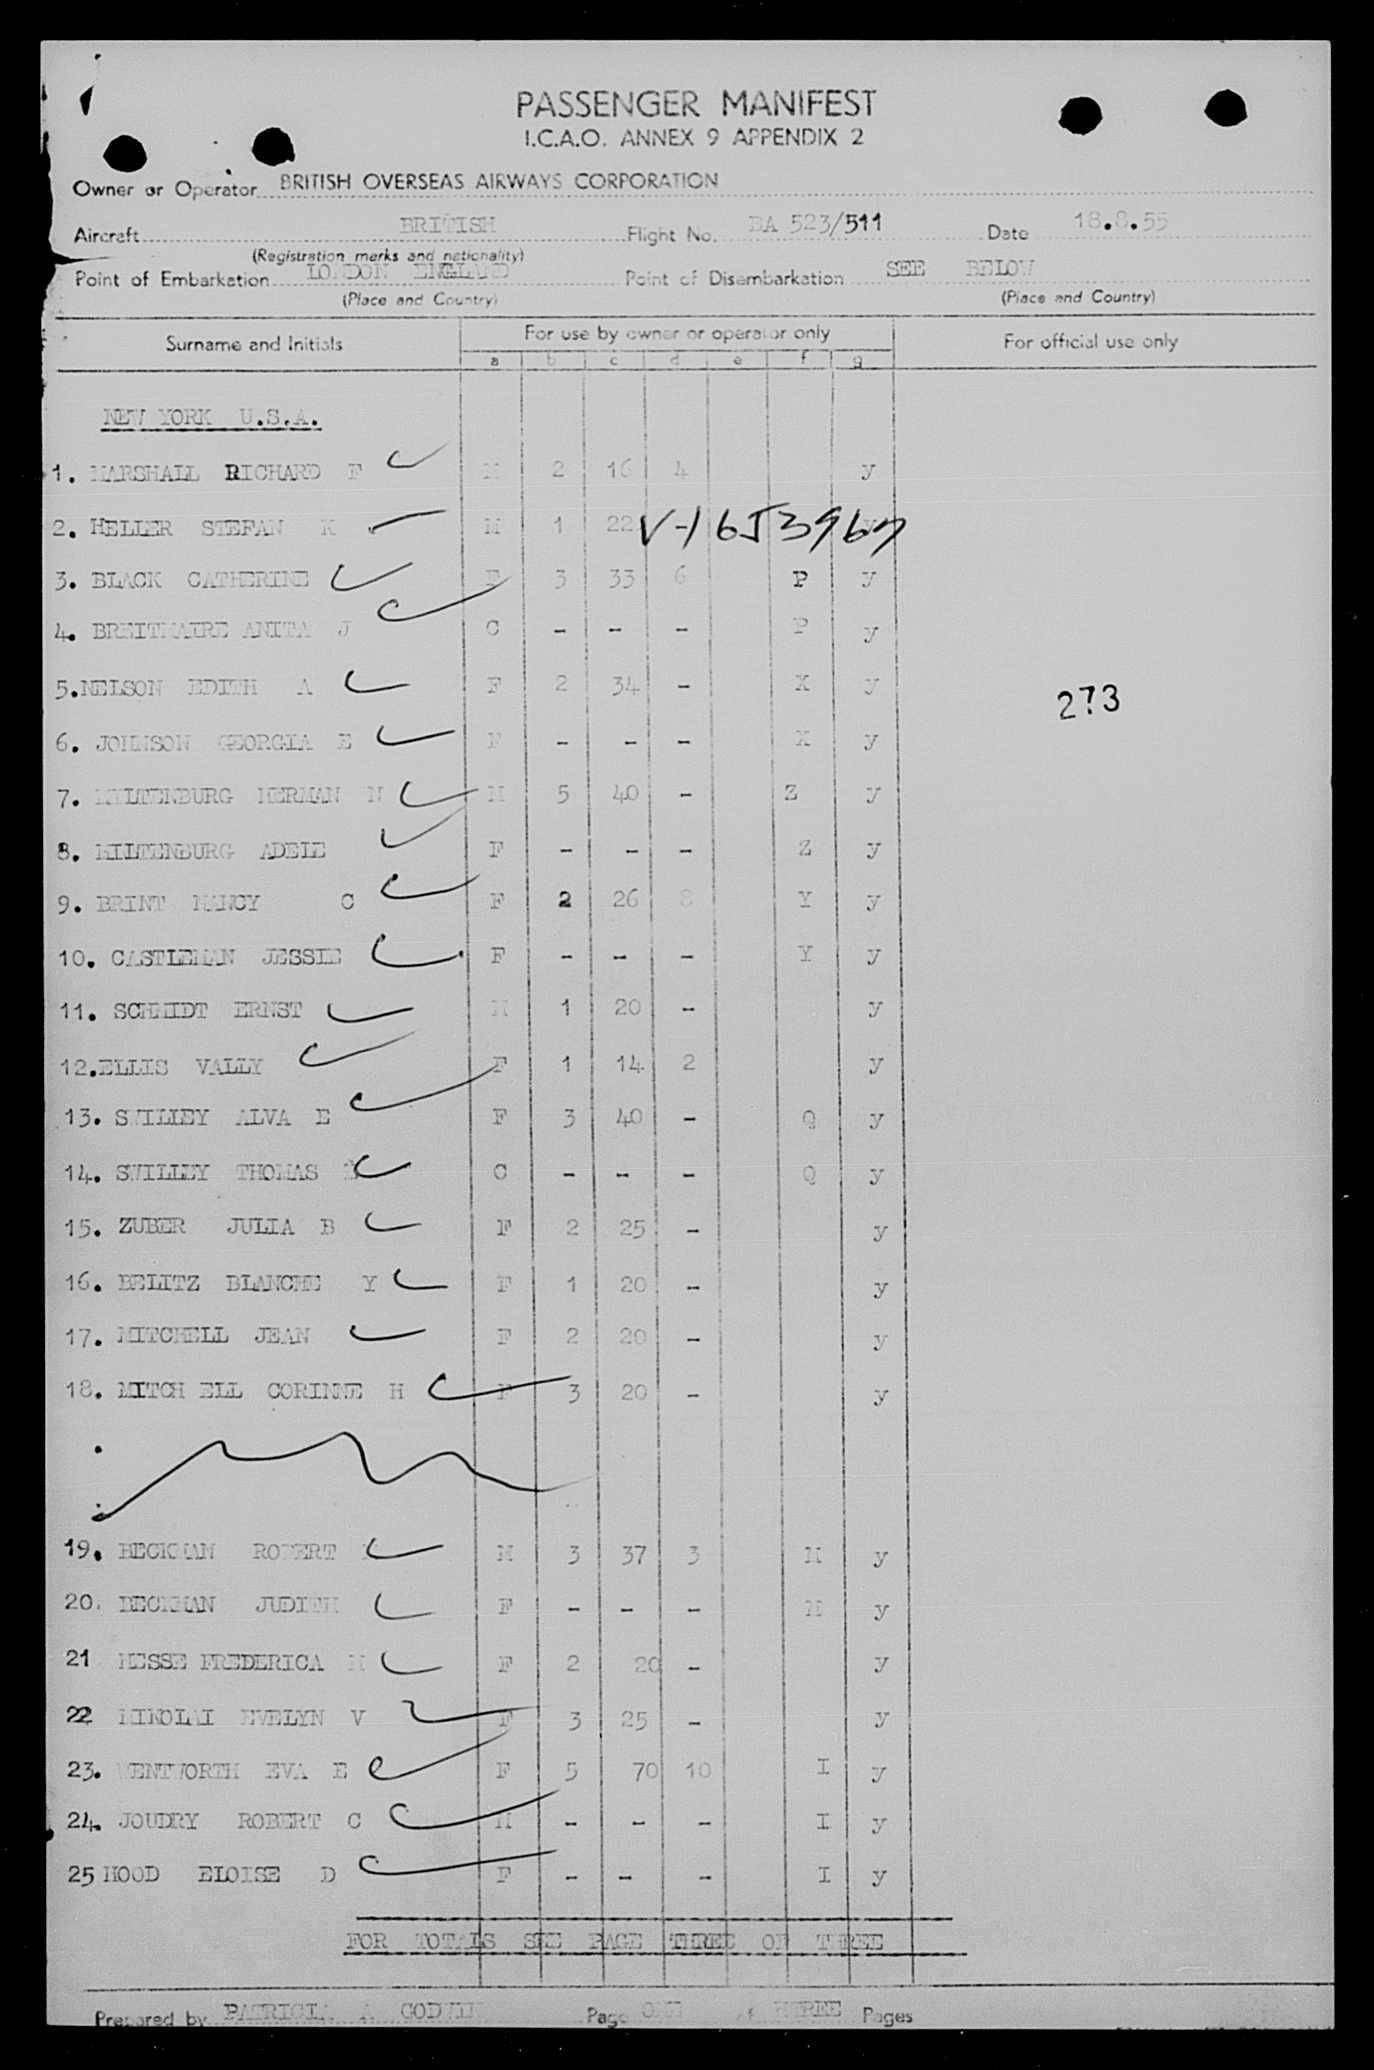 PASSENGER MANIFEST
I.C.A.O. ANNEX 9 APPENDIX 2
Owner or Operator BRITISH OVERSEAS AIRWAYS CORPORATION
Aircraft BRITISH Flight No. BA 523/511 Date 18.8.55
(Registration marks and nationality)
Point of Embarkation LONDON ENGLAND Point of Disembarkation SEE BELOW
(Place and Country) (Place and Country)
Surname and Initials For use by owner or operator only For official use only
a b c d e f g
NEW YORK U.S.A.
1. MARSHALL RICHARD F M 2 16 4 y
2. HELLER STEFAN K M 1 22 V-16J3967
3. BLACK CATHERINE F 3 33 6 P y
4. BREITMAIRE ANITA J C - - - P y
5.NELSON EDITH A F 2 34 - X y
273
6. JOHNSON GEORGIA E F - - - X y
7. MILTENBURG HERMAN N M 5 40 - Z y
8. MILTENBURG ADELE F - - - Z y
9. BRINT NANCY C F 2 26 8 Y y
10. CASTLEMAN JESSIE F - - - Y y
11. SCHMIDT ERNST M 1 20 - y
12.ELLIS VALLY F 1 14 2 y
13. SWILLEY ALVA E F 3 40 - Q y
14. SWILLEY THOMAS C - - - Q y
15. ZUBER JULIA B F 2 25 - y
16. BELITZ BLANCHE Y F 1 20 - y
17. MITCHELL JEAN F 2 20 - y
18. MITCH ELL CORINNE H F 3 20 - y
19. BECKMAN ROBERT M 3 37 3 M y
20. BECKMAN JUDITH F - - - M y
21 HESSE FREDERICA M F 2 20 - y
22 NIKOLAI EVELYN V F 3 25 - y
23. WENTWORTH EVA E F 5 70 10 I y
24. JOUDRY ROBERT C M - - - I y
25 HOOD ELOISE D F - - - I y
FOR TOTALS SEE PAGE THREE OF THREE
Prepared by PATRICIA A GODWIN Page ONE of THREE Pages